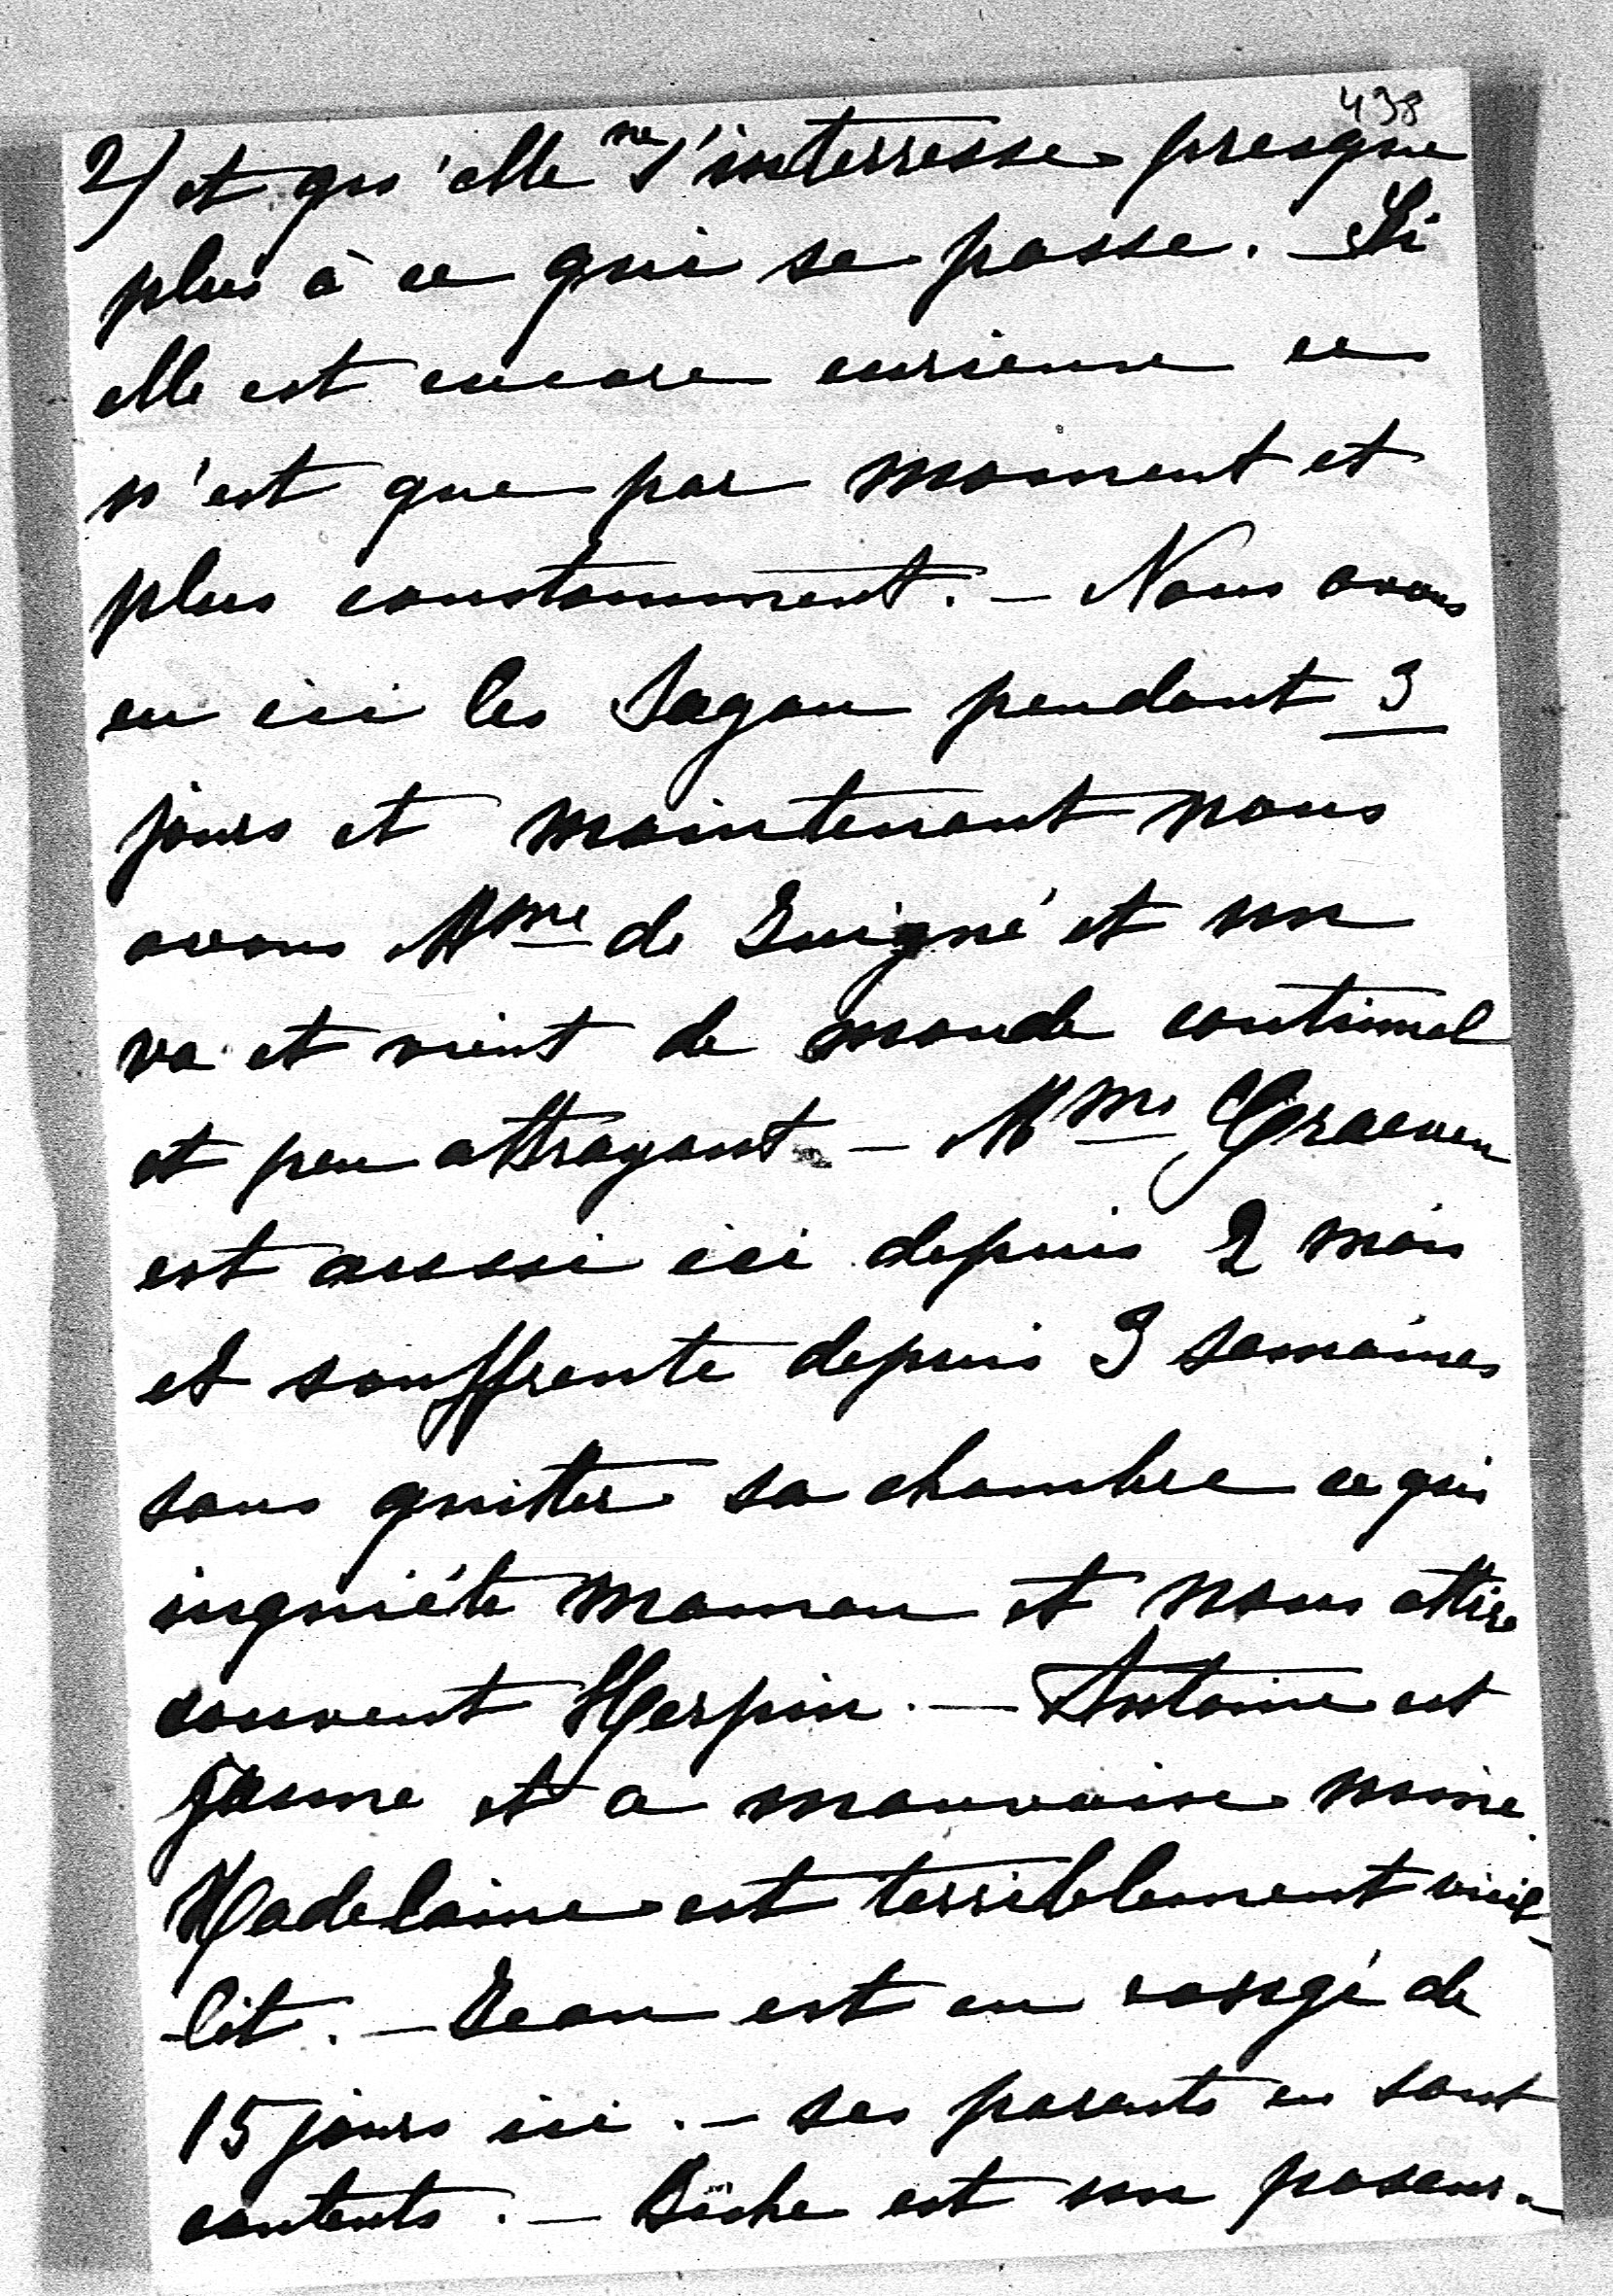 438
2) et qu'elle ne s'interresse presque
plus à ce qui se passe. – Si
elle est encore curieuse ce
n'est que par moment et
plus constamment. – Nous avons
eu ici les Sagan pendant 3
jours et maintenant nous
avons Mme de et un
va et vient de monde continuel
et peu attrayant – Mme Graeven
est aussi ici depuis 2 mois
et souffrante depuis 3 semaines
sans quitter sa chambre ce qui
inquiéte maman et nous attire
souvent Herpin. – Antoine est
jaune et a mauvaise mine.
Madelaine est terriblement vieil-
-lit. – Jean est en congé de
15 jours ici. – ses parents en sont
contents. – Biche est un poseur.